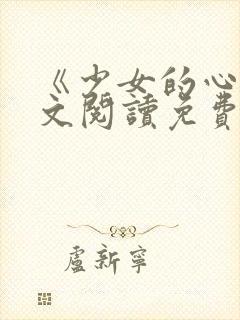 《少女的心
文閱讀免費
盧新寧